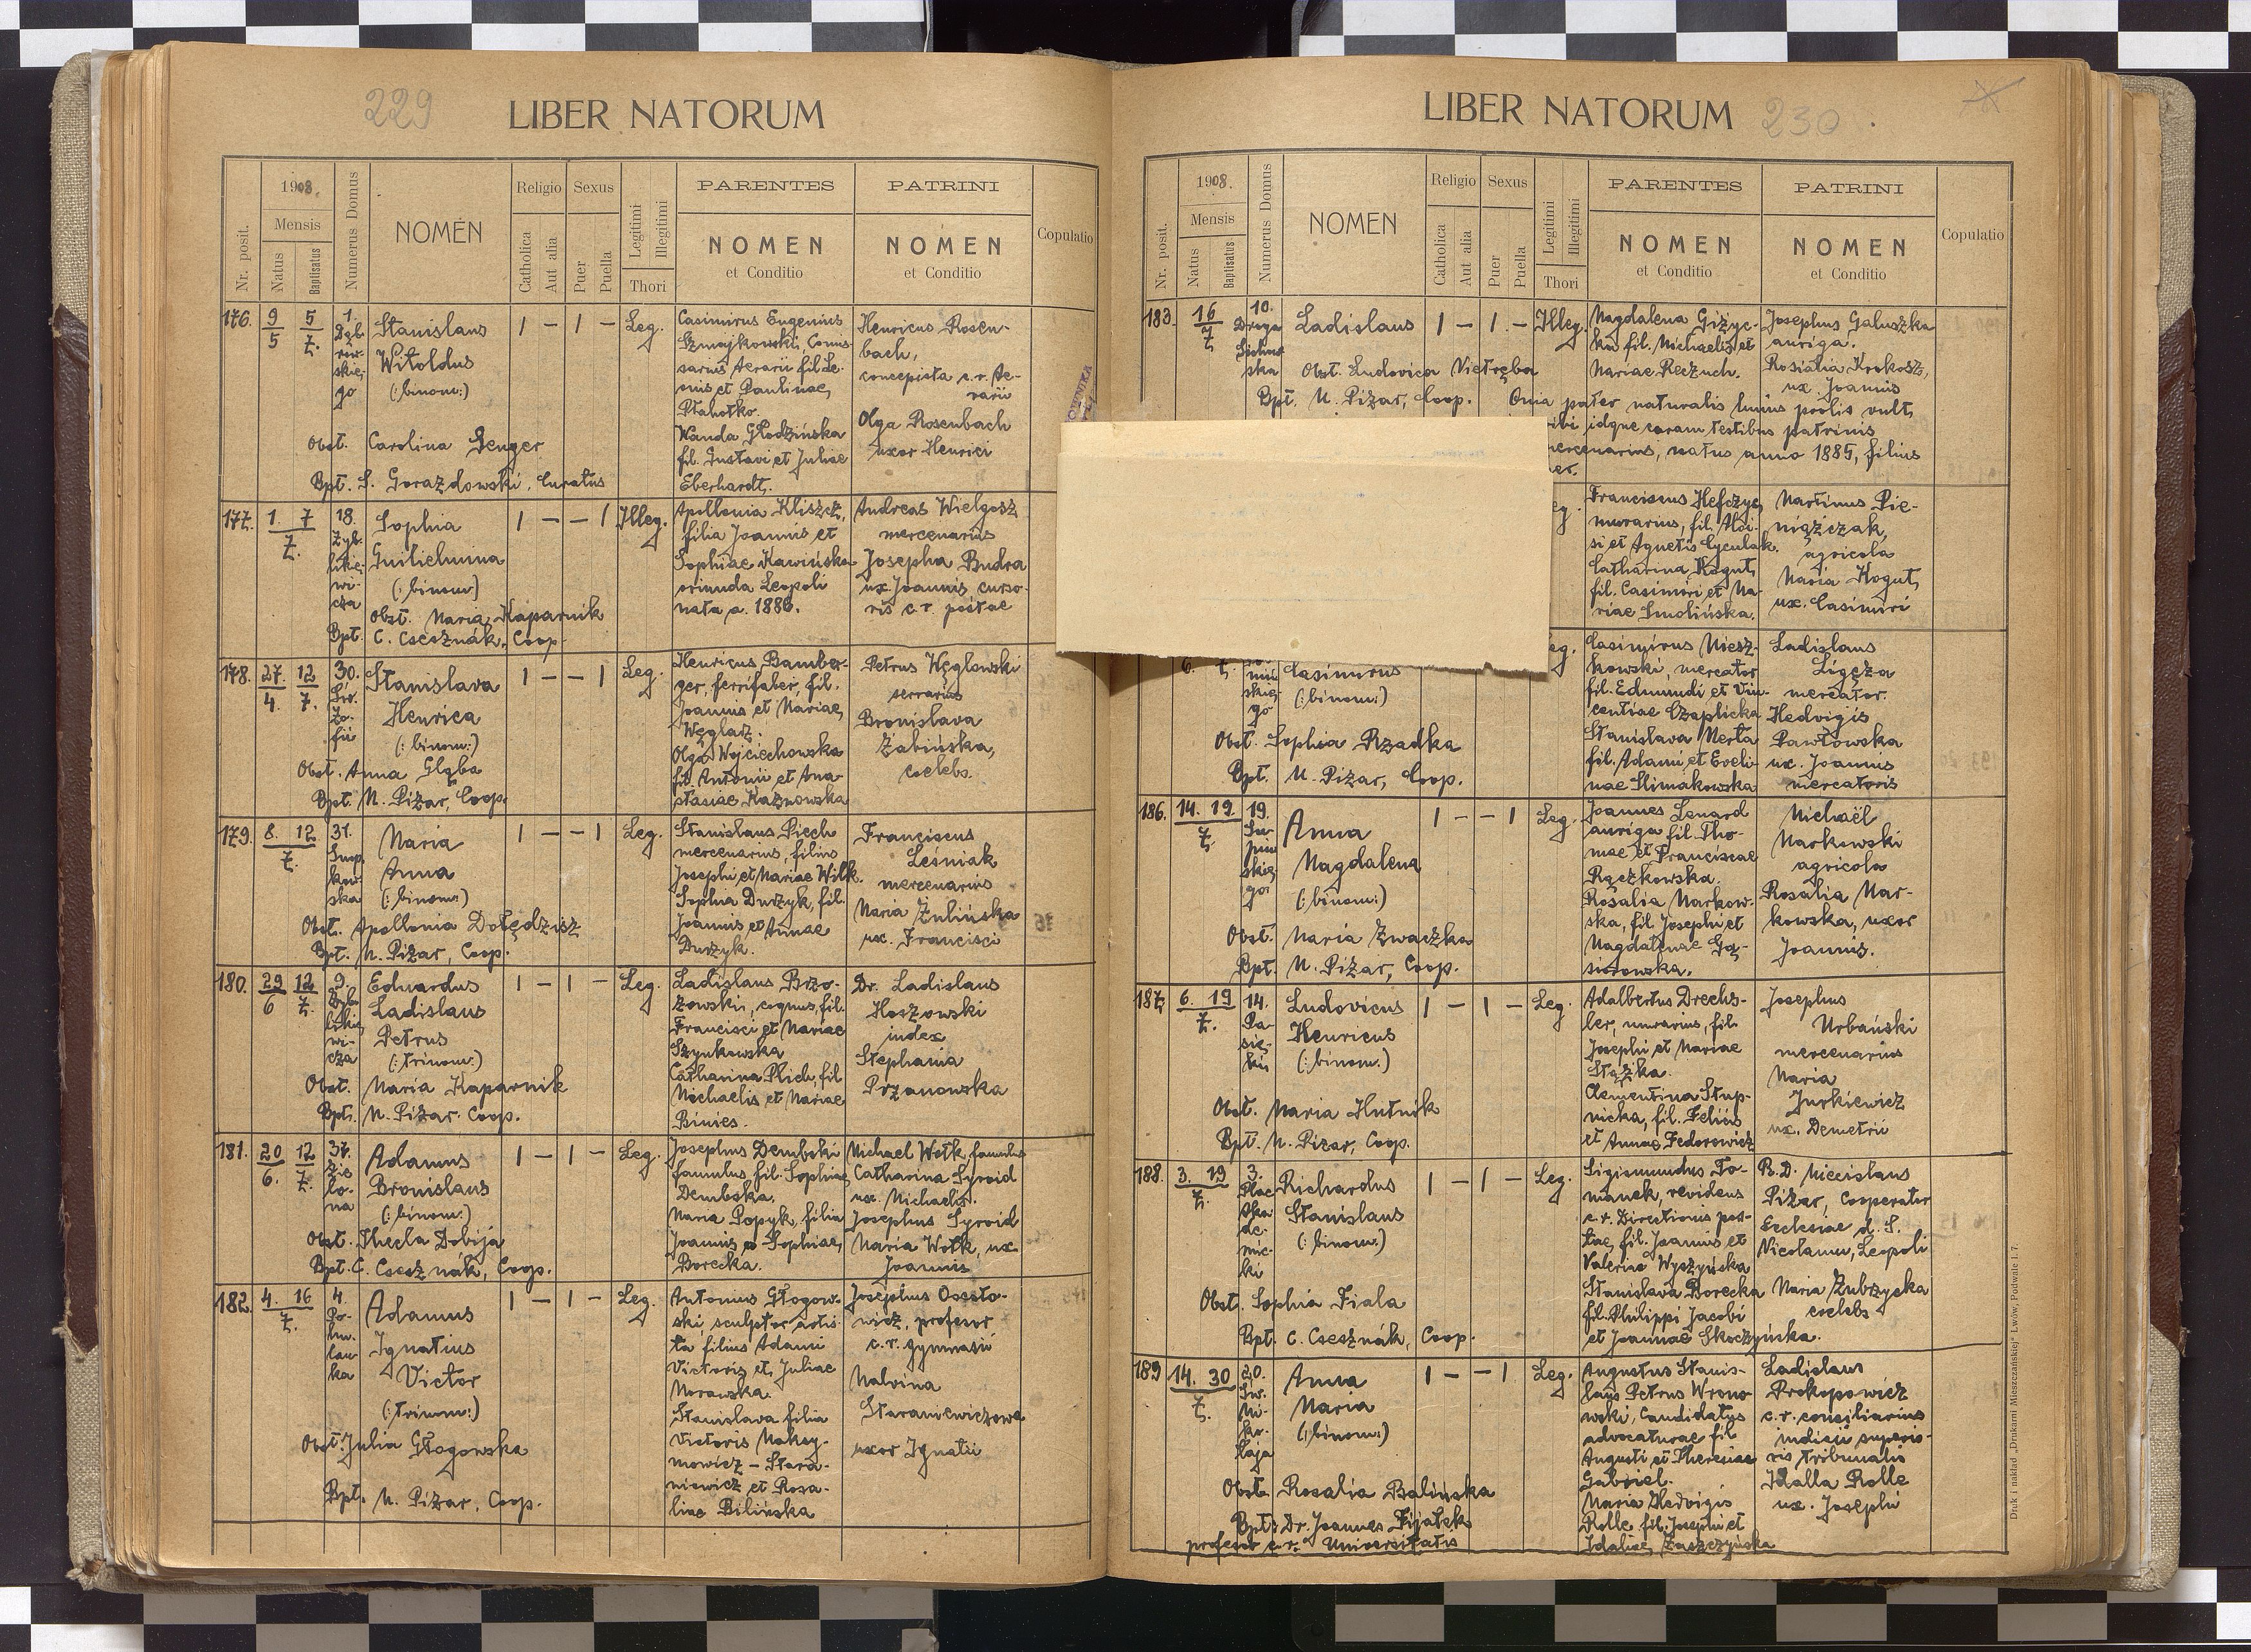 229
LIBER NATORUM
Nr. posit.
1908.
Mensis
Natus
Baptisatus
Numerus Domus
NOMEN
Religio
Catholica
Aut alia
Sexus
Puer
Puella
Legitimi
Illegitimi
Thori
PARENTES
NOMEN
et Conditio
PATRINI
NOMEN
et Conditio
Copulatio
176.
9 5
5 7.
1.
Stanislaus
Witoldus
(: binom:)
1 - 1 -
Leg.
Casimirus Eugenius
Szmajkowski, Comis-
sarius Aerarii fil. Le-
onis et Paulinae,
Wanda Głodzińska
fil. Gustavi et Juliae
Eberhardt.
Henricus Rosen-
bach,
concepista c. r. Ae-
rarii
Olga Rosenbach
uxor Henrici
Obst. Carolina Senger
Bpt. S. Gorazdowski, Curatus
177.
1. 7
7.
18.
Sophia
Guilielmina
(: binom)
1 - - 1
Illeg.
Apollonia Kliszcz,
filia Joannis et
Sophiae Kawińska
oriunda Leopoli
nata a. 1886.
Andreas Wielgosz
mercenarius
Josepha Budra
ux. Joannis curso-
ris c. r. postae
Obst. Maria Kaparnik
Bpt. C. Csesznák, Coop.
178.
27. 12
4. 7.
30.
Św.
Zo-
fii
Stanislava
Henrica
(: binom:)
1 - - 1
Leg.
Henricus Bamber-
ger, ferrifaber, fil.
Joannis et Mariae,
Węglarz.
Olga Wojciechowska
fil. Antonii et Ana-
stasiae Kaznowska
Petrus Węglowski
serrarius
Bronislava
Żabińska,
coelebs.
Obst. Anna Głąba
Bpt. M. Piżar, Coop.
179.
8. 12
7.
31.
Snop-
kow-
ska
Maria
Anna
(: binom:)
1 - - 1
Leg.
Stanislaus Piech
mercenarius, filius
Josephi et Mariae Wilk.
Sophia Durzyk, fil.
Joannis et Annae
Durzyk.
Franciscus
Leśniak
mercenarius
Maria Żulińska
ux. Francisci
Obst. Apollonia Dołędzisz
Bpt. M. Piżar, Coop.
180.
29 12
6 7.
9.
Eduardus
Ladislaus
Petrus
(: trinom:)
1 - 1 -
Leg.
Ladislaus Brzo-
zowski, coquus, fil.
Francisci et Mariae
Szynkowska
Catharina Plich, fil
Michaelis et Mariae
Binies.
Dr. Ladislaus
Hoszowski
index
Stephania
Przanowska
Obst. Maria Kaparnik
Bpt. M. Piżar. Coop.
181.
20 12
6. 7.
37.
Zie-
lo-
na
Adamus
Bronislaus
(: binom:)
1 - 1 -
Leg.
Josephus Dembski
famulus, fil. Sophiae
Dembska.
Maria Popyk, filia
Joannis et Sophiae,
Borecka.
Michael Wołk, famulus
Catharina Syroid
ux. Michaelis.
Josephus Syroid
Maria Wołk, ux.
Joannis
Obst. Thecla Dobija
Bpt. C. Csesznák, Coop.
182.
4. 16
7.
4.
Po-
hu-
lan-
ka
Adamus
Ignatius
Victor
(: trinom:)
1 - 1 -
Leg.
Antonius Głogow-
ski, sculptor artis-
ta filius Adami
Victoris et Juliae
Morawska.
Stanislava filia
Victoris Maksy-
mowicz - Stara-
niewicz et Rosa-
liae Bilińska
Josephus Ossoło-
wicz, profesor
c. r. gymnasii
Malvina
Staraniewiczowa
uxor Ignatii
Obst: Julia Głogowska
Bpt. M. Piżar, Coop.
230
LIBER NATORUM
Nr. posit.
1908.
Mensis
Natus
Baptisatus
Numerus Domus
NOMEN
Religio
Catholica
Aut alia
Sexus
Puer
Puella
Legitimi
Illegitimi
Thori
PARENTES
NOMEN
et Conditio
PATRINI
NOMEN
et Conditio
Copulatio
183.
16
7
10.
Droga
Ladislaus
1 - 1. -
Illeg.
Magdalena Giżyc-
ka fil. Michaelis et
Mariae Reczuch.
Josephus Gałuszka
auriga.
Rosalia Krokosz,
ux. Joannis
Obst. Ludovica Wietręba
Bpt. M. Piżar, Coop.
Quia pater naturalis huius prolis vult,
idque coram testibus patrinis
mercenarius, natus anno 1885, filius
Franciscus Hefczyc,
murarius, fil. Aloi-
si et Agnetis Cyculak.
Catharina Kogut,
fil. Casimiri et Ma-
riae Smolińska.
Martinus Pie-
niążczak,
agricola
Maria Kogut,
ux. Casimiri
6. 7.
skie-
go
Casimirus
(: binom:)
Casimirus Miesz-
kowski, mercator
fil. Edmundi et Vin-
centiae Czaplicka
Stanislava Merta
fil. Adami et Eveli-
nae Slimakowska
Ladislaus
Ligęza
mercator.
Hedvigis
Pawłowska
ux. Joannis
mercatoris
Obst. Sophia Rzadka
Bpt. M. Piżar, Coop.
186.
14. 19.
7.
19.
Anna
Magdalena
(: binom:)
1 - - 1
Leg.
Joannes Lenard
auriga fil. Tho-
mae et Franciscae
Rączkowska.
Rosalia Markow-
ska, fil. Josephi et
Magdalenae Gą-
siorowska.
Michaël
Markowski
agricola
Rosalia Mar-
kowska, uxor
Joannis.
Obst. Maria Zwaczka
Bpt. M. Piżar, Coop.
187.
6. 19
7.
14.
Pa-
sie-
ki
Ludovicus
Henricus
(: binom:)
1 - 1 -
Leg.
Adalbertus Drechs-
ler, murarius, fil.
Josephi et Mariae
Stążka.
Clementina Stup-
nicka, fil. Felicis
et Annae Fedorowicz
Josephus
Urbański
mercenarius
Maria
Jurkiewicz
ux. Demetrii
Obst. Maria Hutnik
Bpt. M. Piżar, Coop.
188.
3. 19
7.
3.
Plac
Aka-
de-
mic-
ki
Richardus
Stanislaus
(: binom:)
1 - 1 -
Leg.
Sigismundus To-
manek, revidens
c. r. Directionis pos-
tae, fil. Joannis et
Valeriae Wyszyńska
Stanislava Borecka
fil. Philippi Jacobi
et Joannae Skoczyńska.
R. D. Miecislaus
Piżar, Cooperator
Ecclesiae d. S.
Nicolaum, Leopoli
Maria Zubrzycka
coelebs
Obst. Sophia Fiala
Bpt. C. Csesznák, Coop.
189
14. 30
7.
20.
Św.
Mi-
ko-
łaja
Anna
Maria
(: binom:)
1 - - 1
Leg.
Augustus Stanis-
laus Petrus Wrono-
wski, Candidatus
advocaturae fil
Augusti et Theresiae
Gabriel.
Maria Hedvigis
Rolle fil. Josephi et
Idaliae, Zaszczyńska
Ladislaus
Prokopowicz
c. r. consiliarius
indicii superio-
ris tribunalis
Idalla Rolle
ux. Josephi
Obst. Rosalia Balińska
Bpt: Dr. Joannes Fijałek
profesor c. r. Universitatis
Druk i nakład „Drukarni Mieszczańskiej" Lwów, Podwale l. 7.